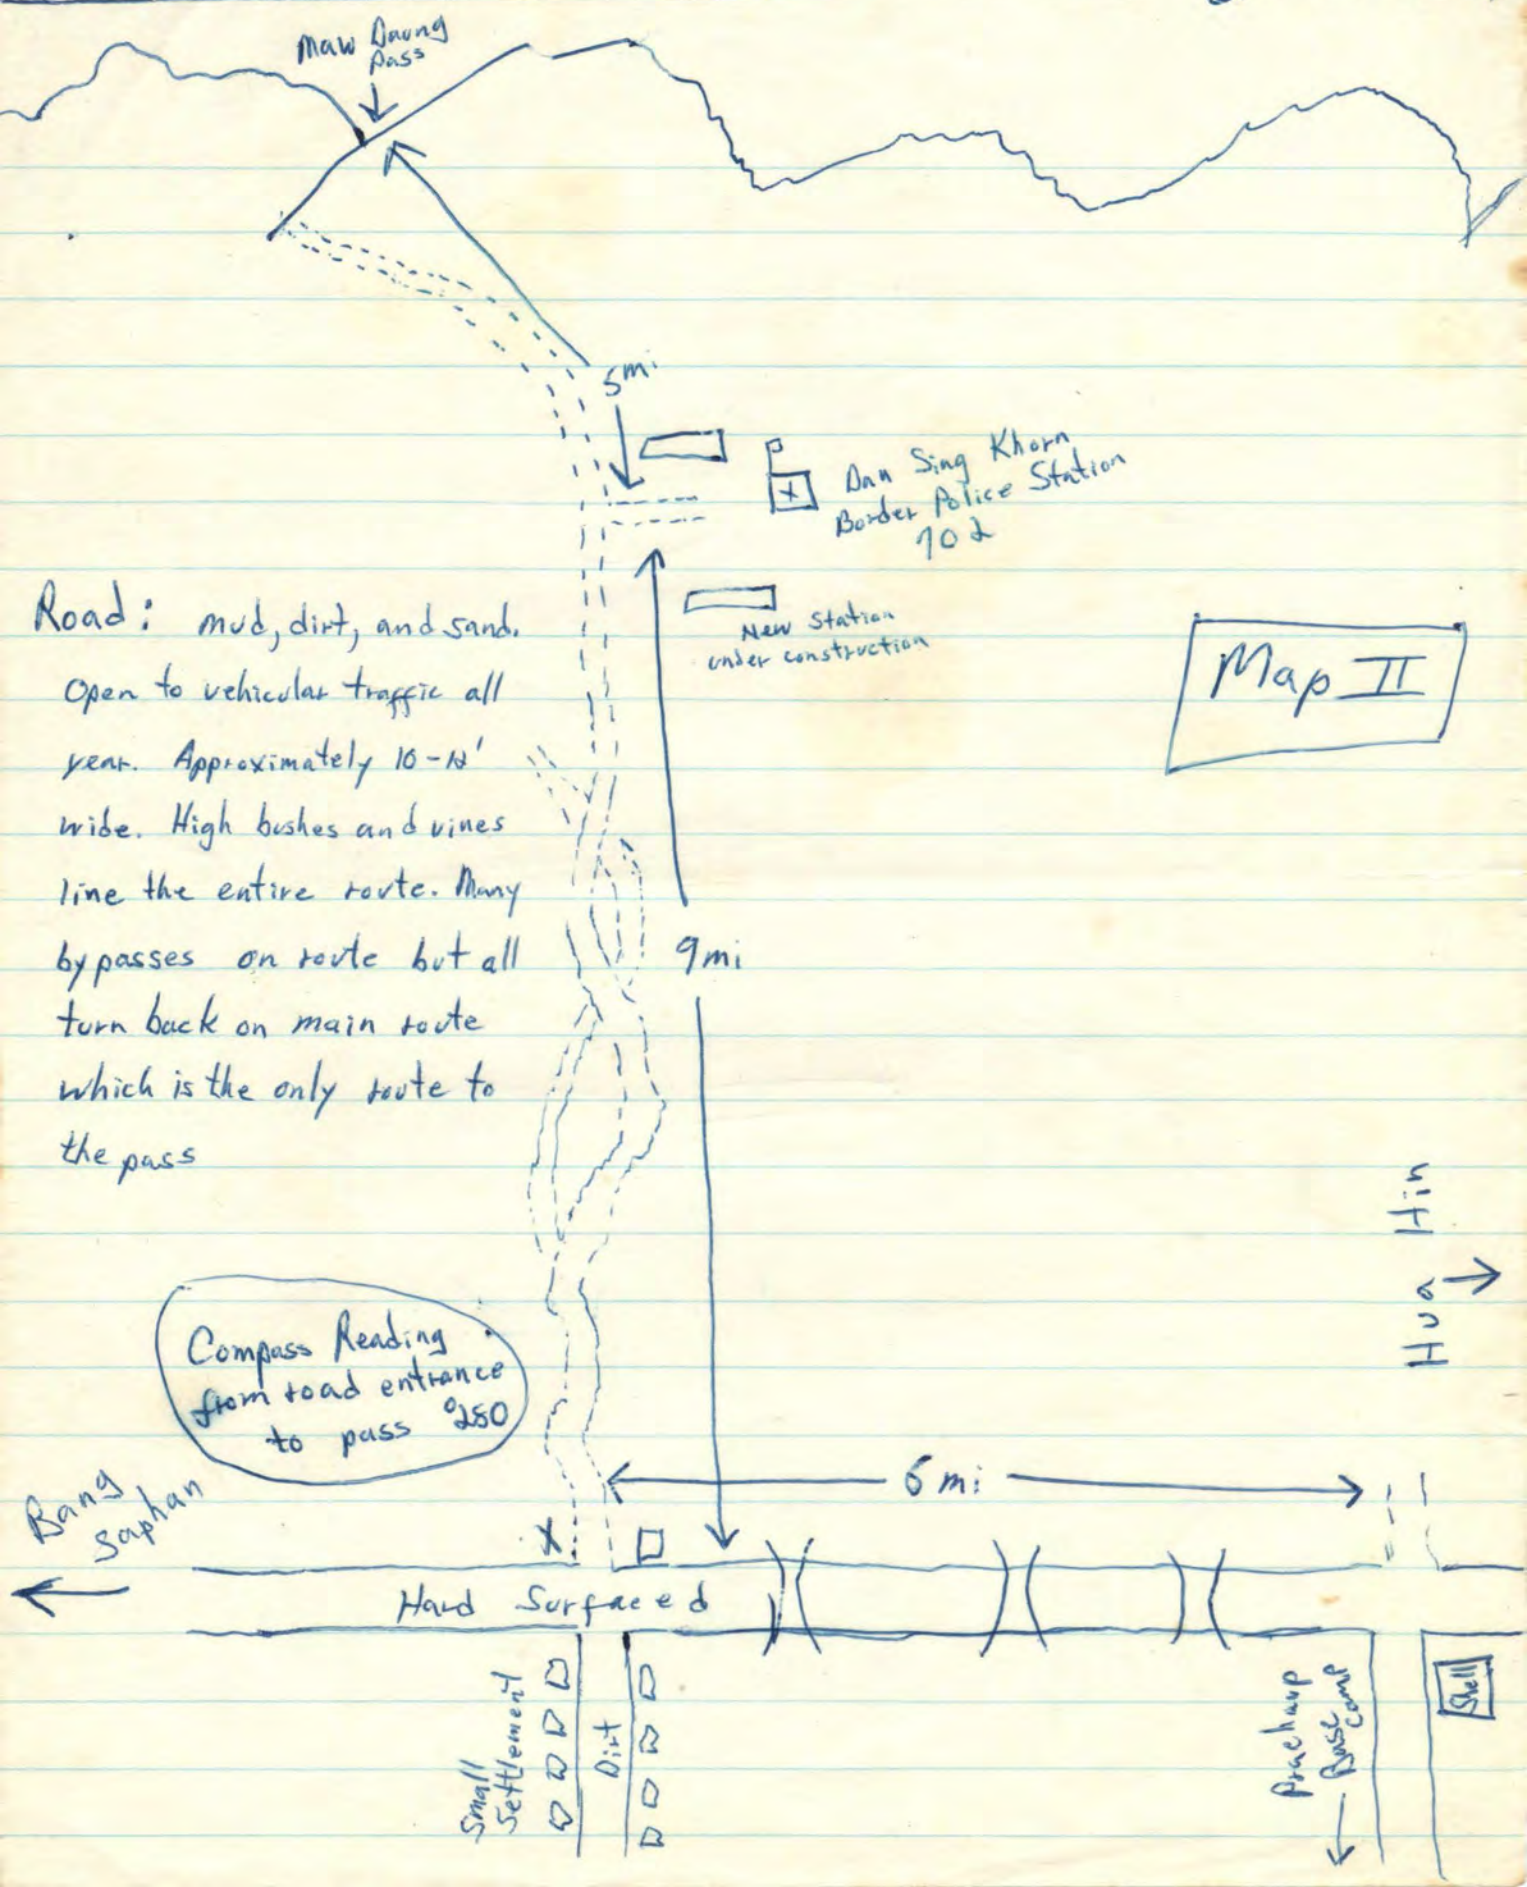 Maw Daung
Pass
5mi
Dan Sing Khorn
Border Police Station
702
New Station
under construction
Road: mud, dirt, and sand.
Open to vehicular traffic all
year. Approximately 10-12'
wide. High bushes and vines
line the entire route. Many
bypasses on route but all
turn back on main route
which is the only route to
the pass
Map II
9mi
Hua Hin
Compass Reading
from road entrance
to pass °280
6 mi
Bang
Saphan
X
Hard Surfaced
Small
Settlement
Dirt
Prachaup
Base
Camp
Shell